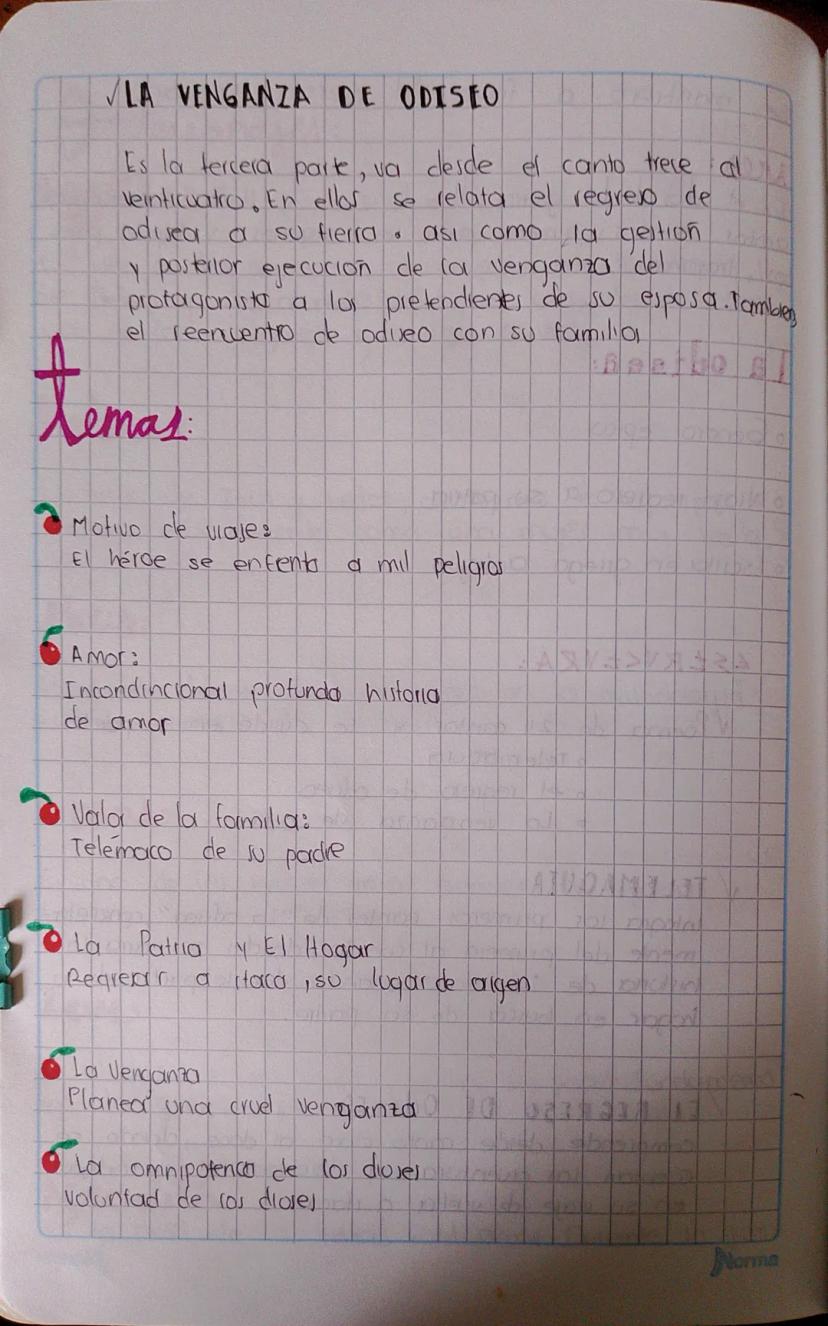 √LA VENGANZA DE ODISEO
Es la tercera parte, va desde el canto trece al
veinticuatro. En ellos se relata el regreso de
odisea a su tierra. asi como la gestion
y posterior ejecucion de la venganza del
protagonista a los pretendientes de su esposa. Tambien
el reencuentro de odiseo con su familia
temas:
Motivo de viaje:
El héroe se enfenta a mil peligros
Amor:
Incondincional profunda historia
de amor
Valor de la familia:
Telémaco de su padre
La Patria y El Hogar
Regresar a itaca, su lugar de origen
La Venganza
Planea una cruel venganza
La omnipotenca de los dioses
voluntad de los dioses
Norma